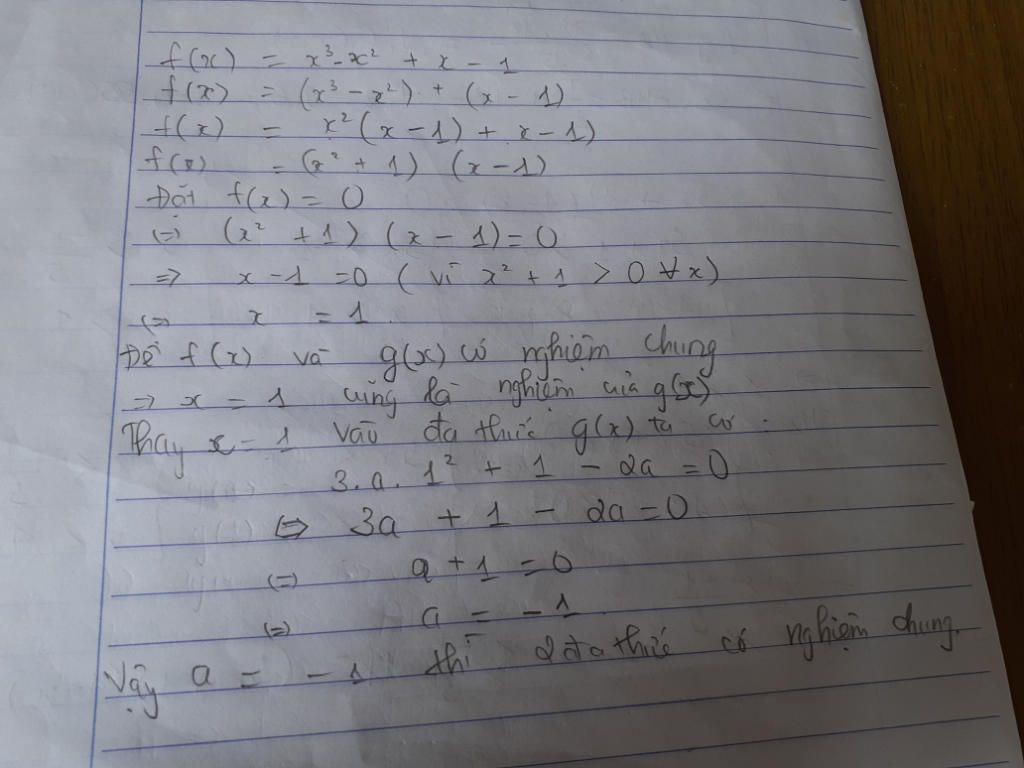 f(x) = x³ - x² + x - 1
f(x) = (x³ - x²) + (x - 1)
f(x) = x²(x - 1) + x - 1)
f(x) = (x² + 1) (x - 1)
Đặt f(x) = 0
(=) (x² + 1) (x - 1) = 0
=> x - 1 = 0 ( vì x² + 1 > 0 ∀ x)
(=) x = 1
Để f(x) và g(x) có nghiệm chung
=> x = 1 cũng là nghiệm của g(x)
Thay x = 1 vào đa thức g(x) ta có :
3.a.1² + 1 - 2a = 0
<=> 3a + 1 - 2a = 0
(=) a + 1 = 0
(=) a = - 1
Vậy a = - 1 thì 2 đa thức có nghiệm chung.